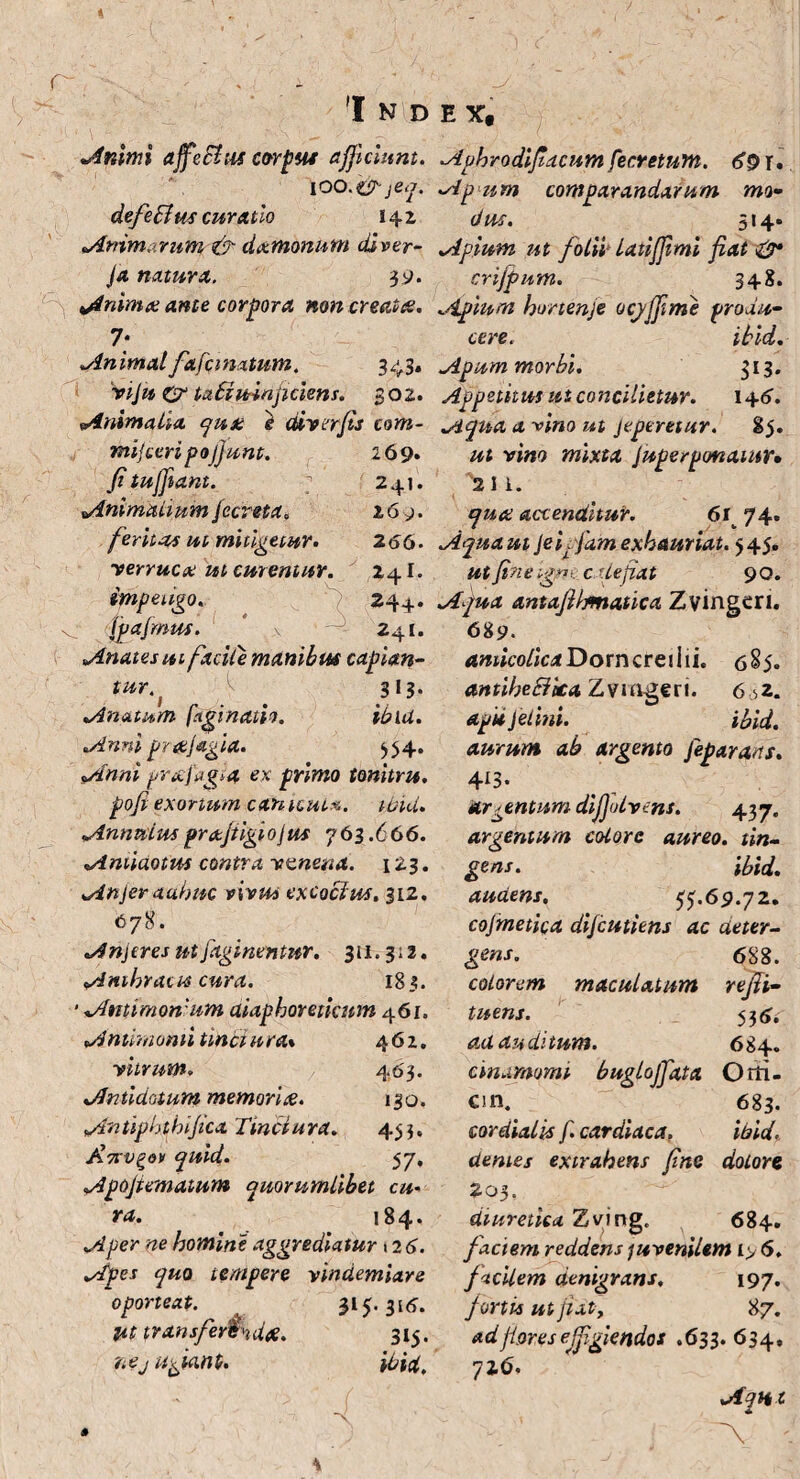 INDEX,
Animi affectus corpus afficiunt.
100. & seq.
defectus curatio 142
Animarum & dæmonum diver-
sa natura. 39.
Animæ ante corpora non creatæ.
7.
Animal fascinatum. 343.
visu & tactu inficiens. 302.
Animalia quæ è diversis com-
misceri possunt. 269.
si tussiant. 241.
Animalium secreta. 269.
feritas ut mitigetur. 266.
verrucæ ut curentur. 241.
impetigo. 244.
spasmus. 241.
Anates ut facile manibus capian-
tur. 313.
Anatum saginatio. ibid.
Anni præsagia. 554.
Anni præsagia ex primo tonitru.
post exortum caniculæ. ibid.
Annulus præstigiosus 763.666.
Antidotus contra venena. 123.
Anser adhuc vivus excoctus. 312.
678.
Anseres ut saginentur. 311. 312.
Anthracis cura. 183.
Antimonium diaphoreticum 461.
Antimonii tinctura. 462.
vitrum. 463.
Antidotum memoriæ. 130.
Antiphthisica Tinctura. 453.
Ἄπυρον quid. 57.
Apostematum quorumlibet cu-
ra. 184.
Aper ne homine aggrediatur 126.
Apes quo tempere vindemiare
oporteat. 315. 316.
ut transferendæ. 315.
ne fugiant. ibid.
Aphrodisiacum secretum. 691.
Apum comparandarum mo-
dus. 314.
Apium ut foliis latissimi fiat &
crispum. 348.
Apium hortense ocyssime produ-
cere. ibid.
Apum morbi. 313.
Appetitus ut concilietur. 146.
Aqua a vino ut seperetur. 85.
ut vino mixta superponatur.
211.
quæ accenditur. 61 74.
Aqua ut seipsam exhauriat. 545.
ut sine igne calefiat 90.
Aqua antasthmatica Zvingeri.
689.
anticolica Dorncreilii. 685.
antihectica Zvingeri. 632.
apii selini. ibid.
aurum ab argento separans.
413.
argentum dissolvens. 437.
argentum colore aureo. tin-
gens. ibid.
audens. 55.69.72.
cosmetica discutiens ac deter-
gens. 688.
colorem maculatum resti-
tuens. 536.
ad auditum. 684.
cinamomi buglossata Orti-
cin. 683.
cordialis s. cardiaca. ibid.
dentes extrahens sine dolore
203.
diuretica Zving. 684.
faciem reddens juvenilem 196.
facilem denigrans. 197.
fortis ut fiat, 87.
ad flores effigiendos .633. 634.
726.
Aqua